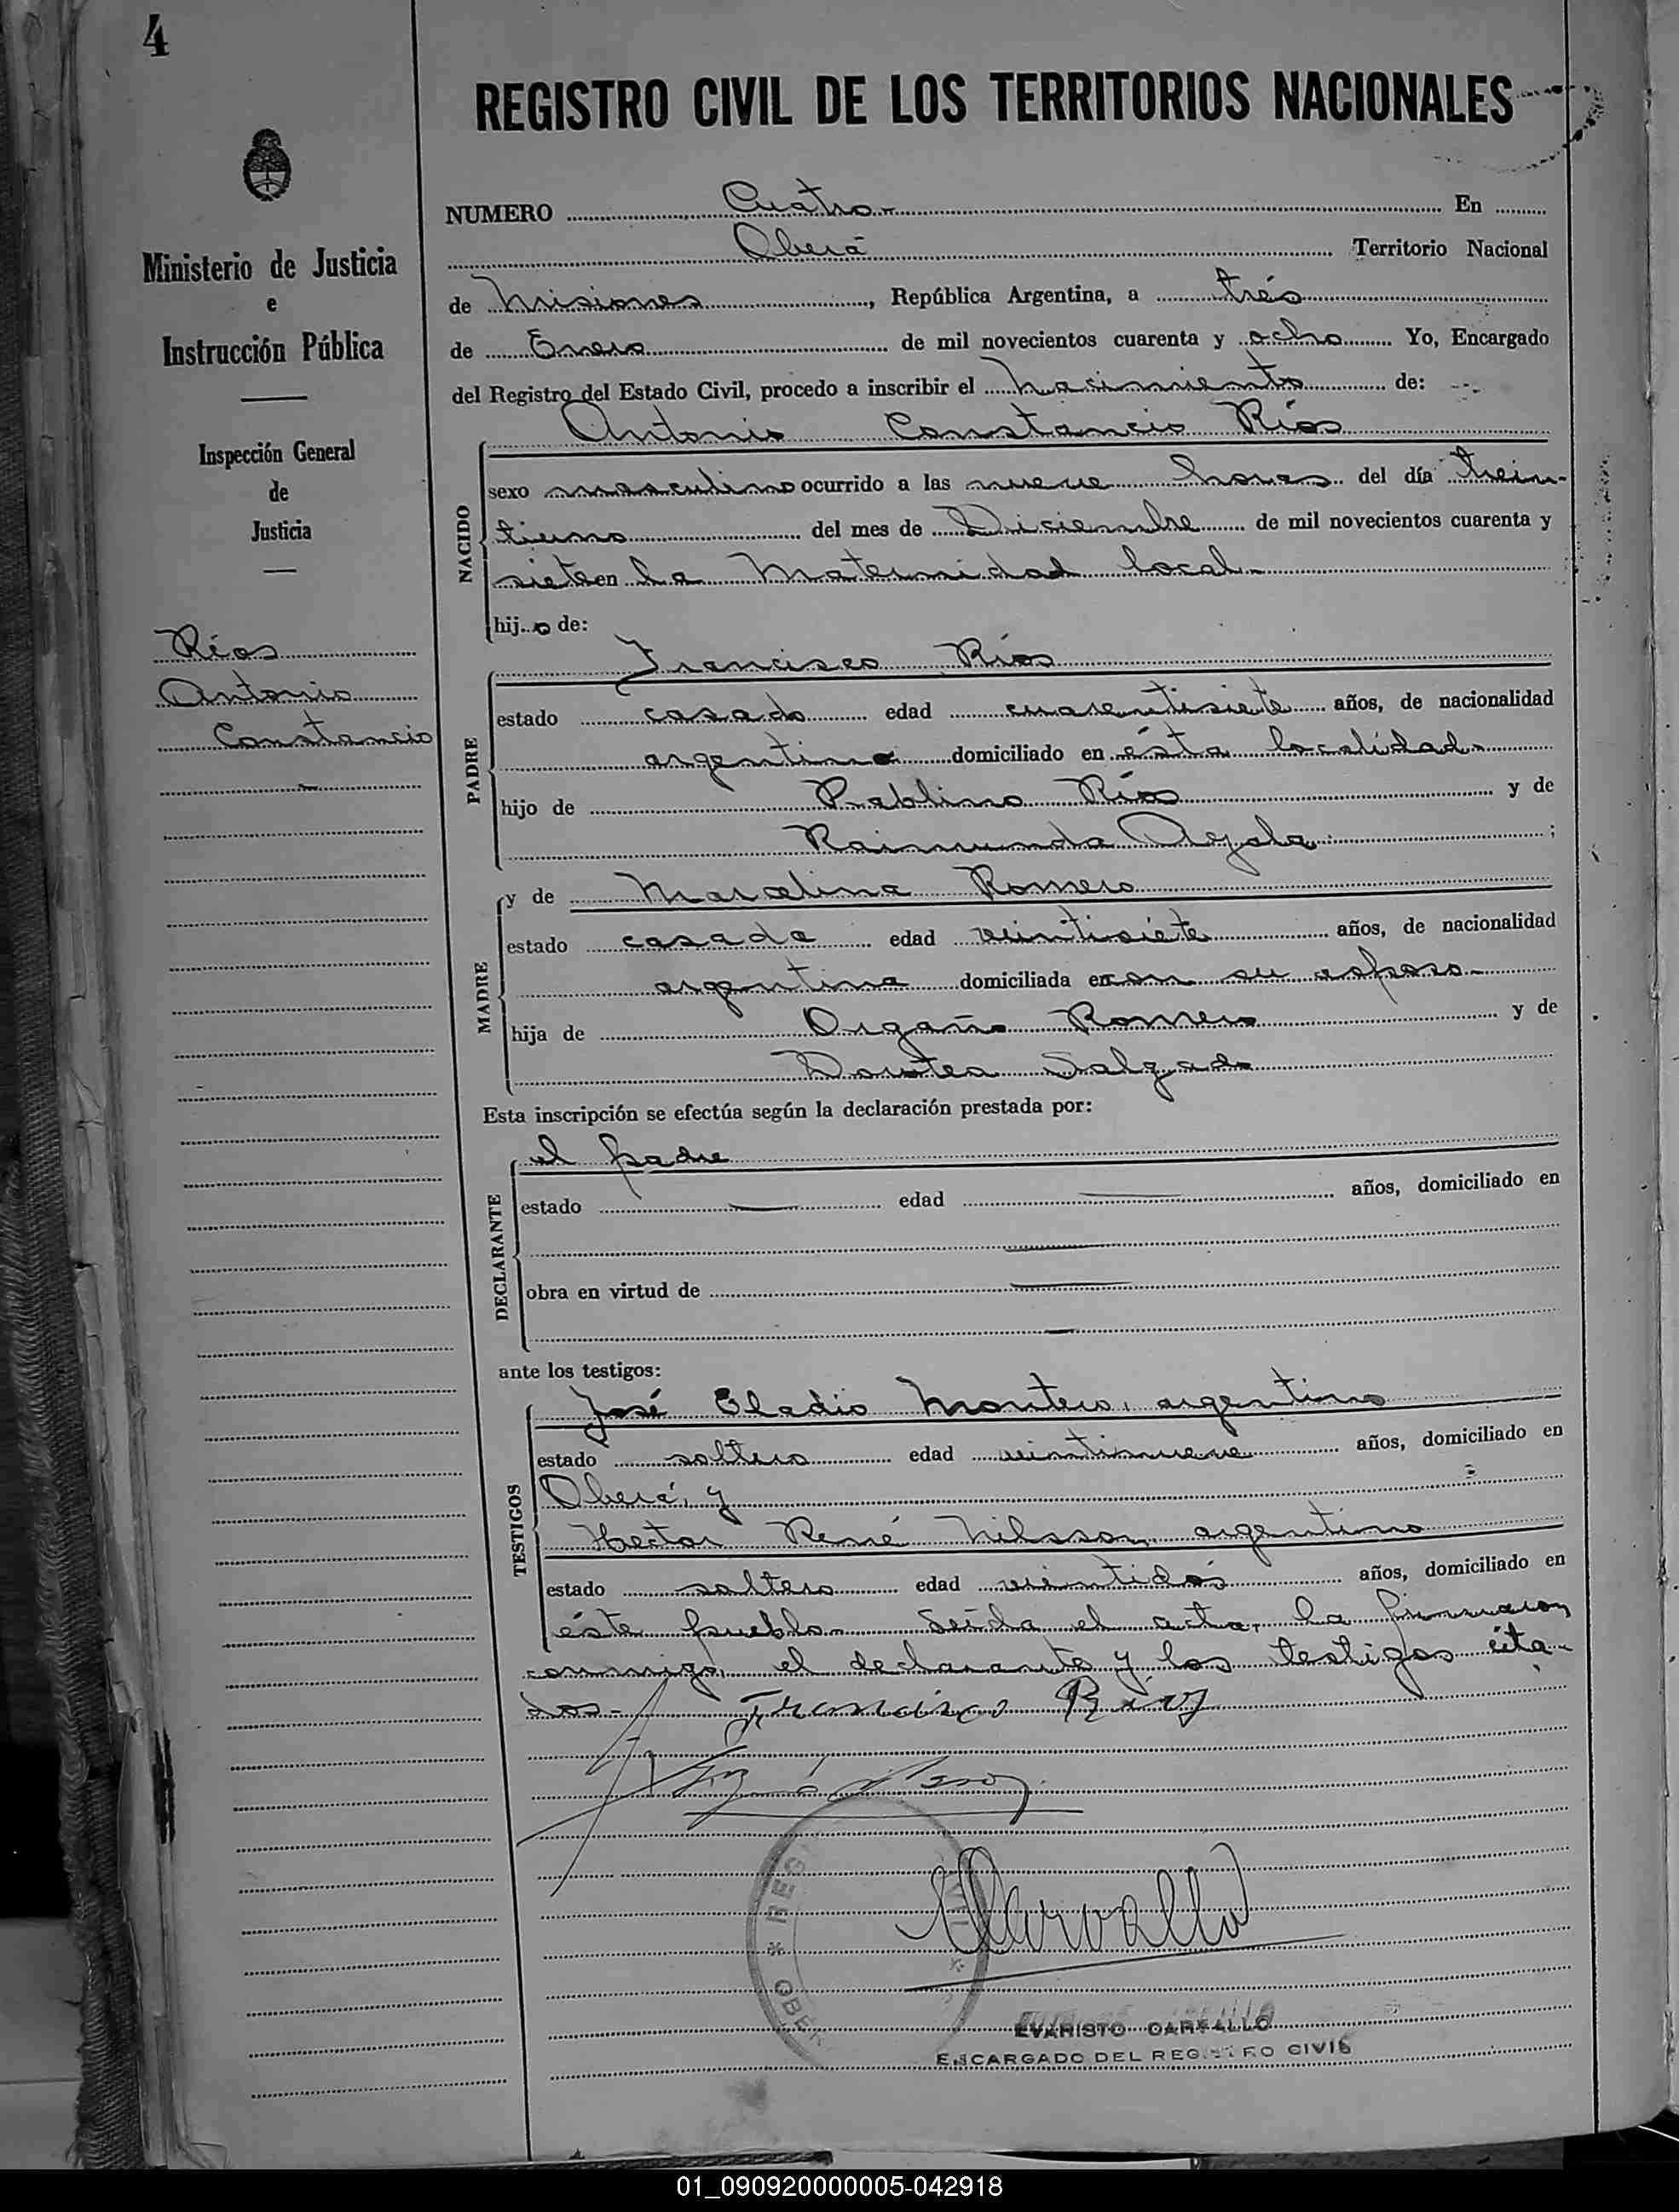 4
REGISTRO CIVIL DE LOS TERRITORIOS NACIONALES
Ministerio de Justicia
e
Instrucción Pública
Inspección General
de
Justicia
Ríos
Antonio
Constancio
NUMERO Cuatro.- En
Oberá Territorio Nacional
de Misiones, República Argentina, a trés
de Enero de mil novecientos cuarenta y ocho Yo, Encargado
del Registro del Estado Civil, procedo a inscribir el nacimiento de:
Antonio Constancio Ríos
NACIDO
sexo masculino ocurrido a las nueve horas del día trein-
tiuno del mes de Diciembre de mil novecientos cuarenta y
siete en la Maternidad local.-
hijo de:
Francisco Ríos
PADRE
estado casado edad cuarentisiete años, de nacionalidad
argentina domiciliado en ésta localidad.-
hijo de Pablino Ríos y de
Raimunda Ayala ;
MADRE
y de Marcelina Romero
estado casada edad veintisiete años, de nacionalidad
argentina domiciliada en con su esposo.-
hija de Romero y de
Dorotea Salgado
Esta inscripción se efectúa según la declaración prestada por:
DECLARANTE
el padre
estado edad años, domiciliado en
obra en virtud de
ante los testigos:
TESTIGOS
José Eladio Montero, argentino
estado soltero edad veintinueve años, domiciliado en
Oberá, y
Hector René Nilsson, argentino
estado soltero edad veintidós años, domiciliado en
éste pueblo.- Leída el acta, la firmaron
conmigo, el declarante y los testigos cita-
dos.- Francisco Rios
REG
CIVIL
OBER
EVARISTO CARVALLO
ENCARGADO DEL REGISTRO CIVIL
01_090920000005-042918